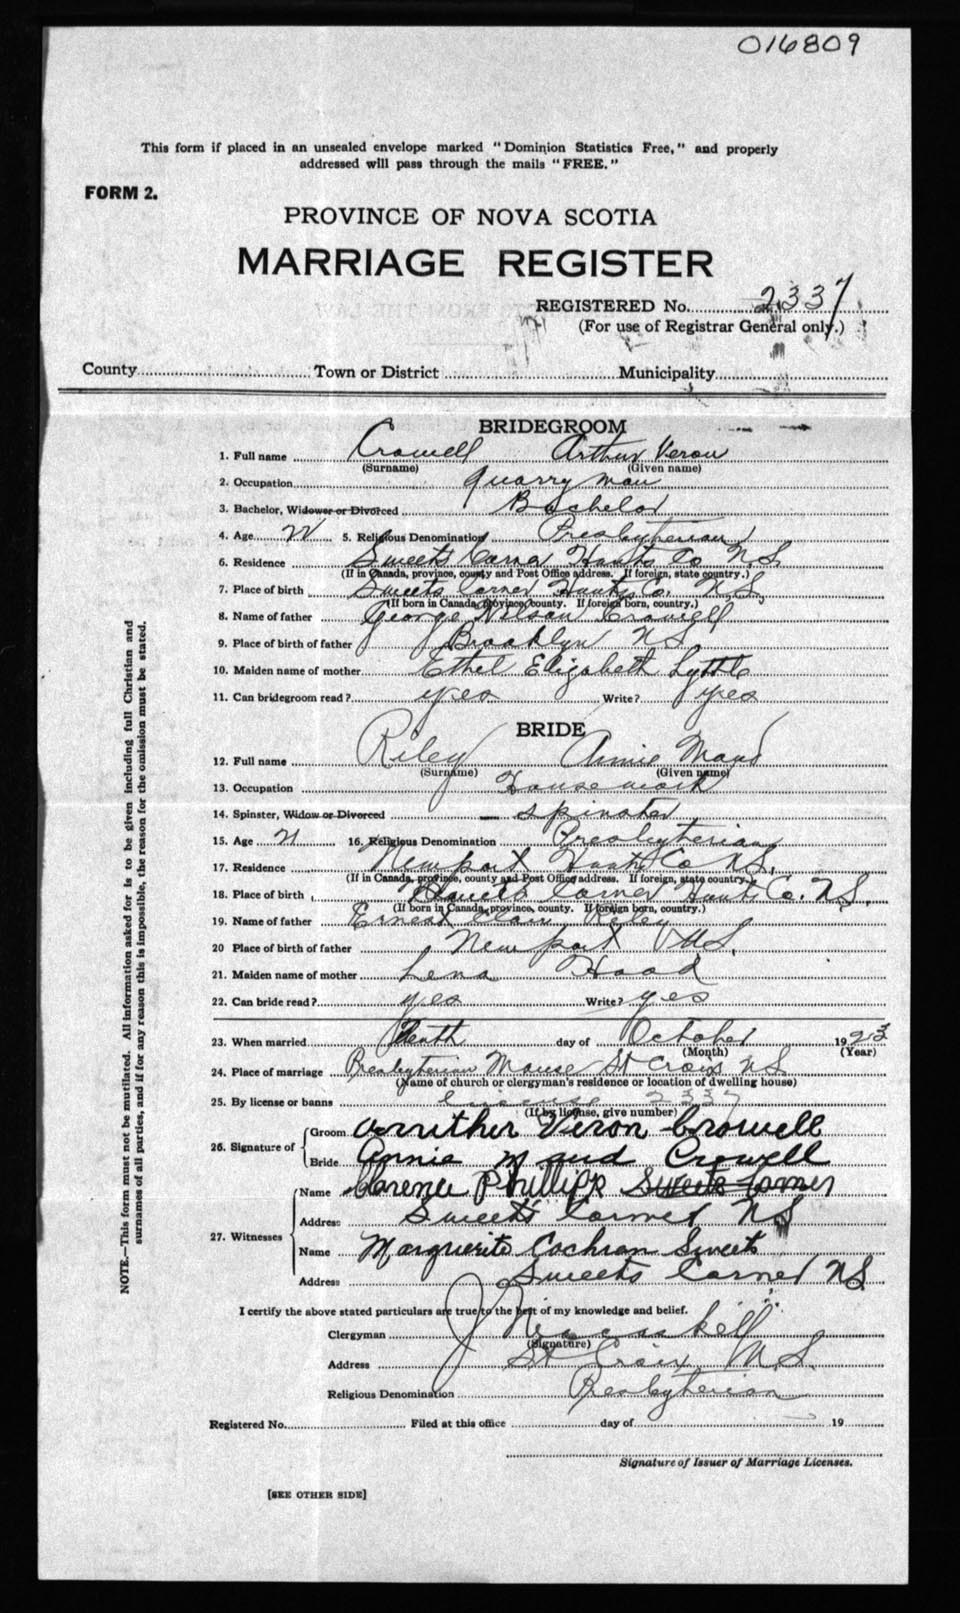 016809
This form if placed in an unsealed envelope marked "Dominion Statistics Free," and properly
addressed will pass through the mails "FREE."
FORM 2.
PROVINCE OF NOVA SCOTIA
MARRIAGE REGISTER
REGISTERED No. 2337
(For use of Registrar General only.)
County Town or District Municipality
BRIDEGROOM
1. Full name Crowell Arthur Veron
(Surname) (Given name)
2. Occupation quarry man
3. Bachelor, Widower or Divorced Bachelor
4. Age 5. Religious Denomination Presbyterian
6. Residence Sweets Corner Hants Co N.S.
(If in Canada, province, county and Post Office address. If foreign, state country.)
7. Place of birth Sweets Corner Hants Co. N.S.
(If born in Canada, province, county. If foreign born, country.)
8. Name of father George Nilson Crowell
9. Place of birth of father Brooklyn N S
10. Maiden name of mother Ethel Elizabeth Lyttle
11. Can bridegroom read? yes Write? yes
BRIDE
12. Full name Riley Annie Maud
(Surname) (Given name)
13. Occupation Housework
14. Spinster, Widow or Divorced - spinster
15. Age 16. Religious Denomination Presbyterian
17. Residence Newport Hants Co N.S.
(If in Canada, province, county and Post Office address. If foreign, state country.)
18. Place of birth Sweets Corner Hants Co. N.S.
(If born in Canada, province, county. If foreign born, country.)
19. Name of father Ernest Riley
20 Place of birth of father Newport N.S.
21. Maiden name of mother Lena Hood
22. Can bride read? yes Write? yes
23. When married Tenth day of October 1923
(Month) (Year)
24. Place of marriage Presbyterian Manse St Croix N S
(Name of church or clergyman's residence or location of dwelling house)
25. By license or banns license 2337
(If by license, give number)
26. Signature of Groom Arruther Veron Crowell
Bride Annie Maud Crowell
27. Witnesses Name Clarence Phillips Sweets Corner
Address Sweets Corner NS
Name Marguerite Cochran Sweets
Address Sweets Corner N.S.
I certify the above stated particulars are true to the best of my knowledge and belief.
Clergyman J
(Signature)
Address St Croix N.S.
Religious Denomination Presbyterian
Registered No. Filed at this office day of 19
Signature of Issuer of Marriage Licenses.
[SEE OTHER SIDE]
NOTE.—This form must not be mutilated. All information asked for is to be given including full Christian and
surnames of all parties, and if for any reason this is impossible, the reason for the omission must be stated.